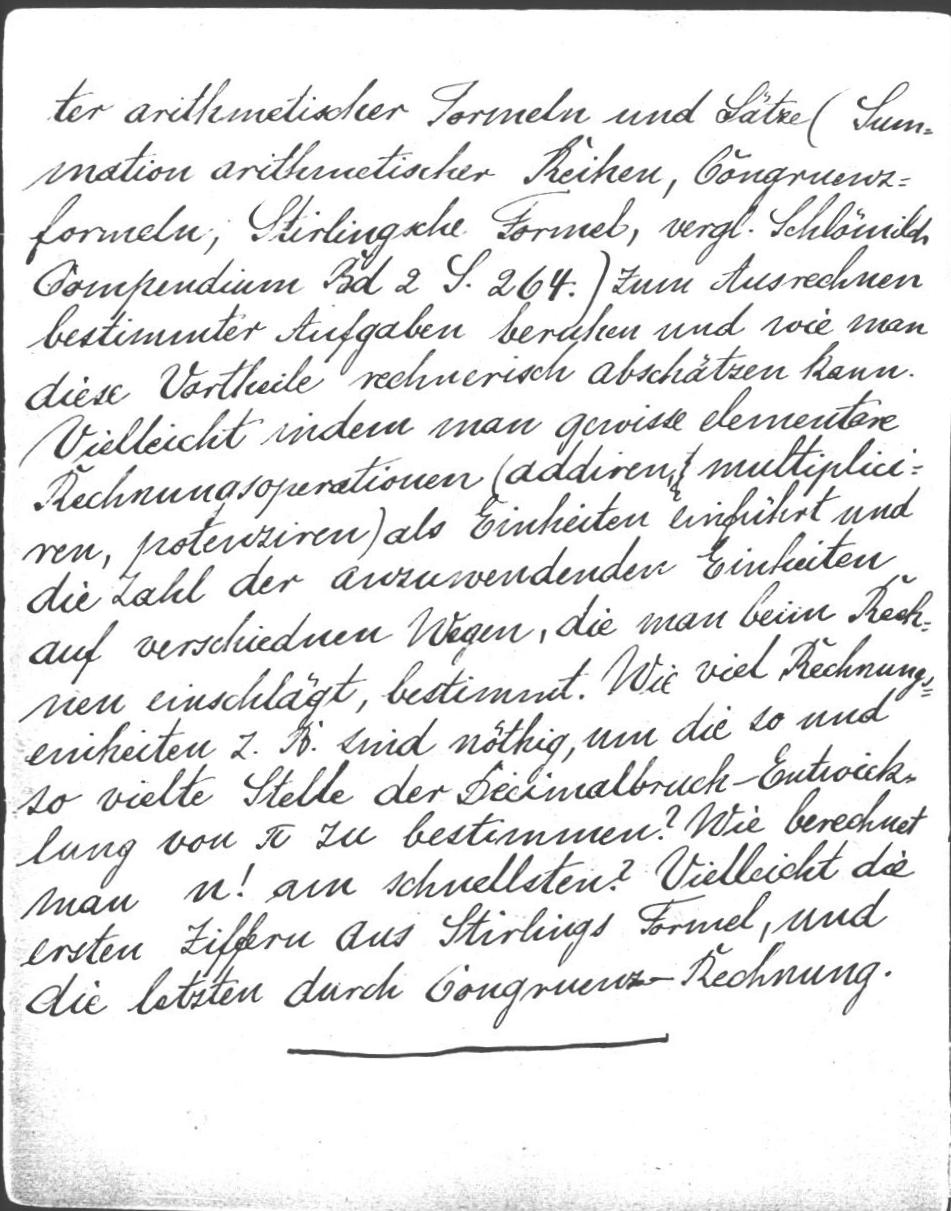 ter arithmetischer Formeln und Sätze (Sum=
mation arithmetischer Reihen, Congruenz=
formeln, Stirlingsche Formel, vergl. Schlömilch
Compendium Bd 2 S. 264.) zum Ausrechnen
bestimmter Aufgaben beruhen und wie man
diese Vortheile rechnerisch abschätzen kann.
Vielleicht indem man gewisse elementare
Rechnungsoperationen (addiren, multiplici=
ren, potenziren) als Einheiten einführt und
die Zahl der anzuwendenden Einheiten
auf verschiednen Wegen, die man beim Rech=
nen einschlägt, bestimmt. Wie viel Rechnungs=
einheiten z. B. sind nöthig, um die so und
so vielte Stelle der Decimalbruch-Entwick=
lung von π zu bestimmen? Wie berechnet
man n! am schnellsten? Vielleicht die
ersten Ziffern aus Stirlings Formel, und
die letzten durch Congruenz-Rechnung.